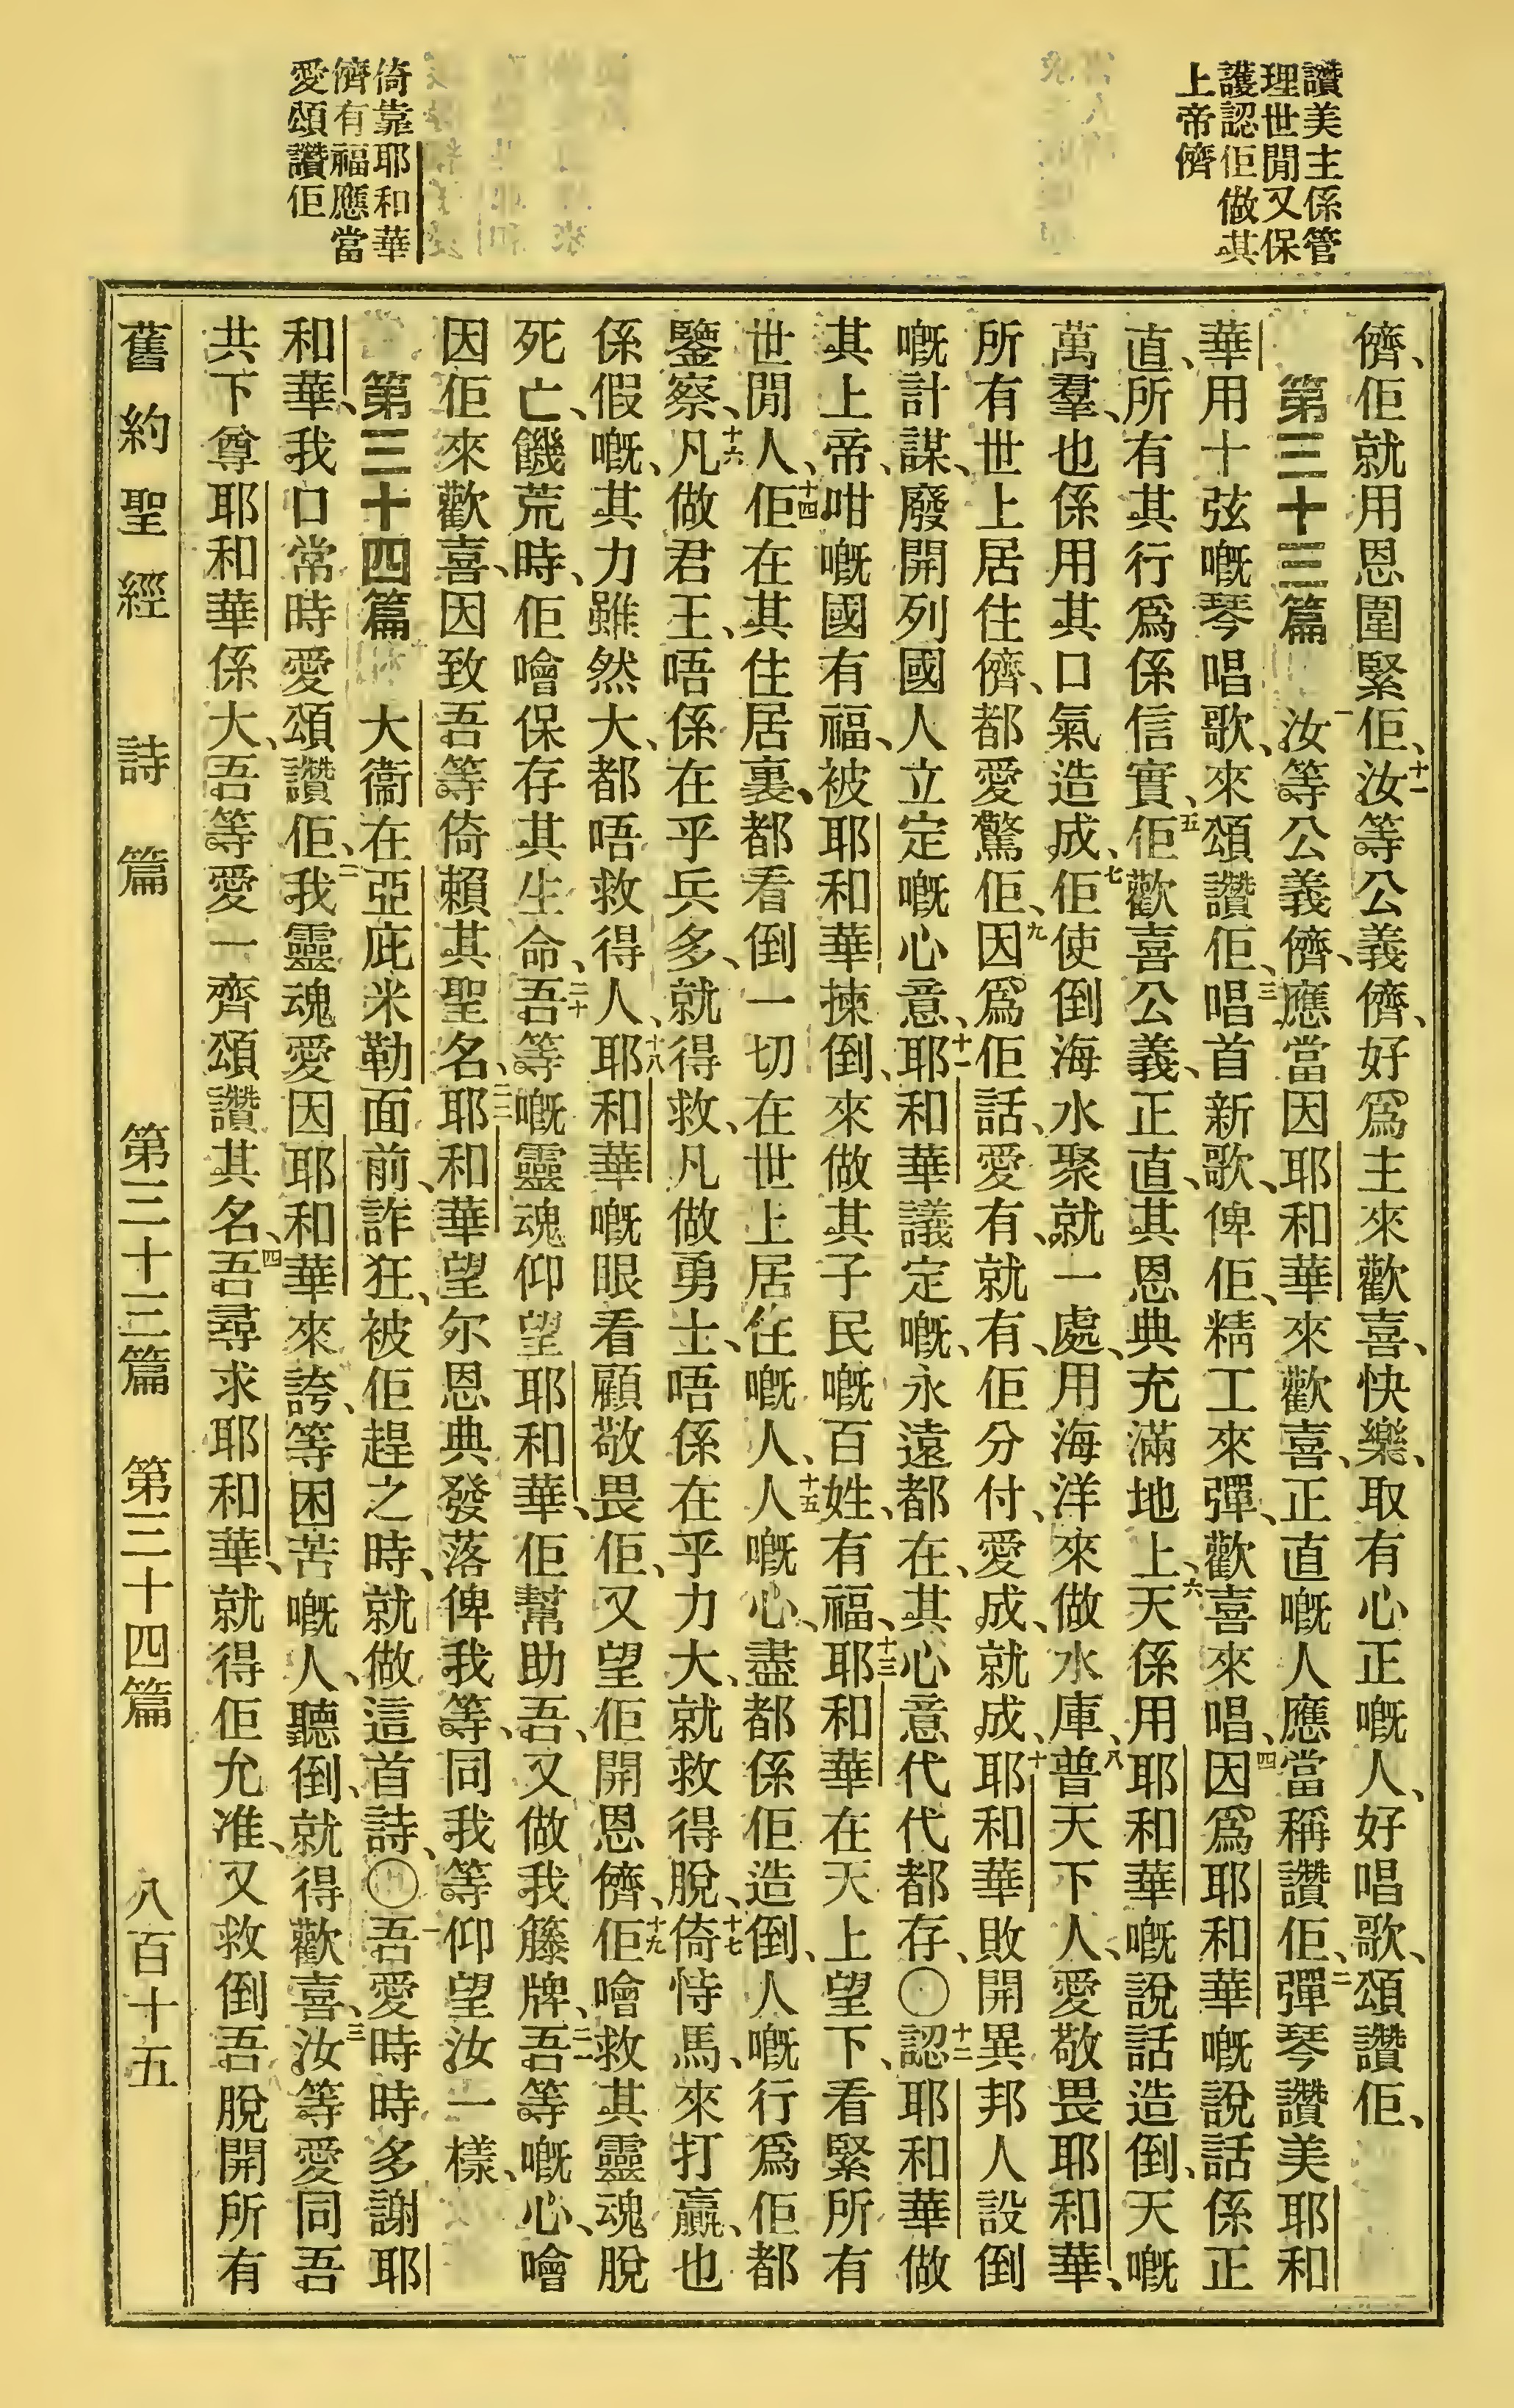 讚美主係管
理世閒又保
護認佢做其
上帝儕
倚靠耶和華
儕有福應當
愛頌讚佢
儕、佢就用恩圍緊佢、十一汝等公義儕、好爲主來歡喜、快樂、取有心正嘅人、好唱歌、頌讚佢、
第三十三篇 一汝等公義儕、應當因耶和華來歡喜、正直嘅人應當稱讚佢、二彈琴讚美耶和
華用十弦嘅琴唱歌、來頌讚佢、三唱首新歌、俾佢、精工來彈、歡喜來唱、四因爲耶和華嘅說話係正
直、所有其行爲係信實、五佢歡喜公義、正直、其恩典充滿地上、六天係用耶和華嘅說話造倒、天嘅
萬羣、也係用其口氣造成、七佢使倒海水聚就一處、用海洋來做水庫、八普天下人、愛敬畏耶和華、
所有世上居住儕、都愛驚佢、九因爲佢話、愛有、就有、佢分付、愛成、就成、十耶和華敗開異邦人設倒
嘅計謀、廢開列國人立定嘅心意、十一耶和華議定嘅、永遠都在、其心意代代都存、〇十二認耶和華做
其上帝、咁嘅國有福、被耶和華揀倒、來做其子民嘅百姓、有福、十三耶和華在天上望下、看緊所有
世閒人、十四佢在其住居裏、都看倒一切在世上居住嘅人、十五人嘅心、盡都係佢造倒、人嘅行爲佢都
鑒察、十六凡做君王、唔係在乎兵多、就得救、凡做勇士、唔係在乎力大、就救得脫、十七倚恃馬、來打贏、也
係假嘅、其力雖然大、都唔救得人、十八耶和華嘅眼看顧敬畏佢、又望佢開恩儕、十九佢噲救其靈魂脫
死亡、饑荒時、佢噲保存其生命、二十吾等嘅靈魂仰望耶和華、佢幫助吾、又做我籐牌、二一吾等嘅心、噲
因佢來歡喜、因致吾等倚賴其聖名、二二耶和華望尔恩典發落俾我等、同我等仰望汝一樣、
第三十四篇 大衞在亞庇米勒面前、詐狂、被佢趕之時、就做這首詩、〇一吾愛時時多謝耶
和華、我口常時愛頌讚佢、二我靈魂愛因耶和華來誇、等困苦嘅人、聽倒、就得歡喜、三汝等愛同吾
共下尊耶和華係大、吾等愛一齊頌讚其名、四吾尋求耶和華、就得佢允准、又救倒吾脫開所有
舊約聖經 詩篇 第三十三篇 第三十四篇 八百十五